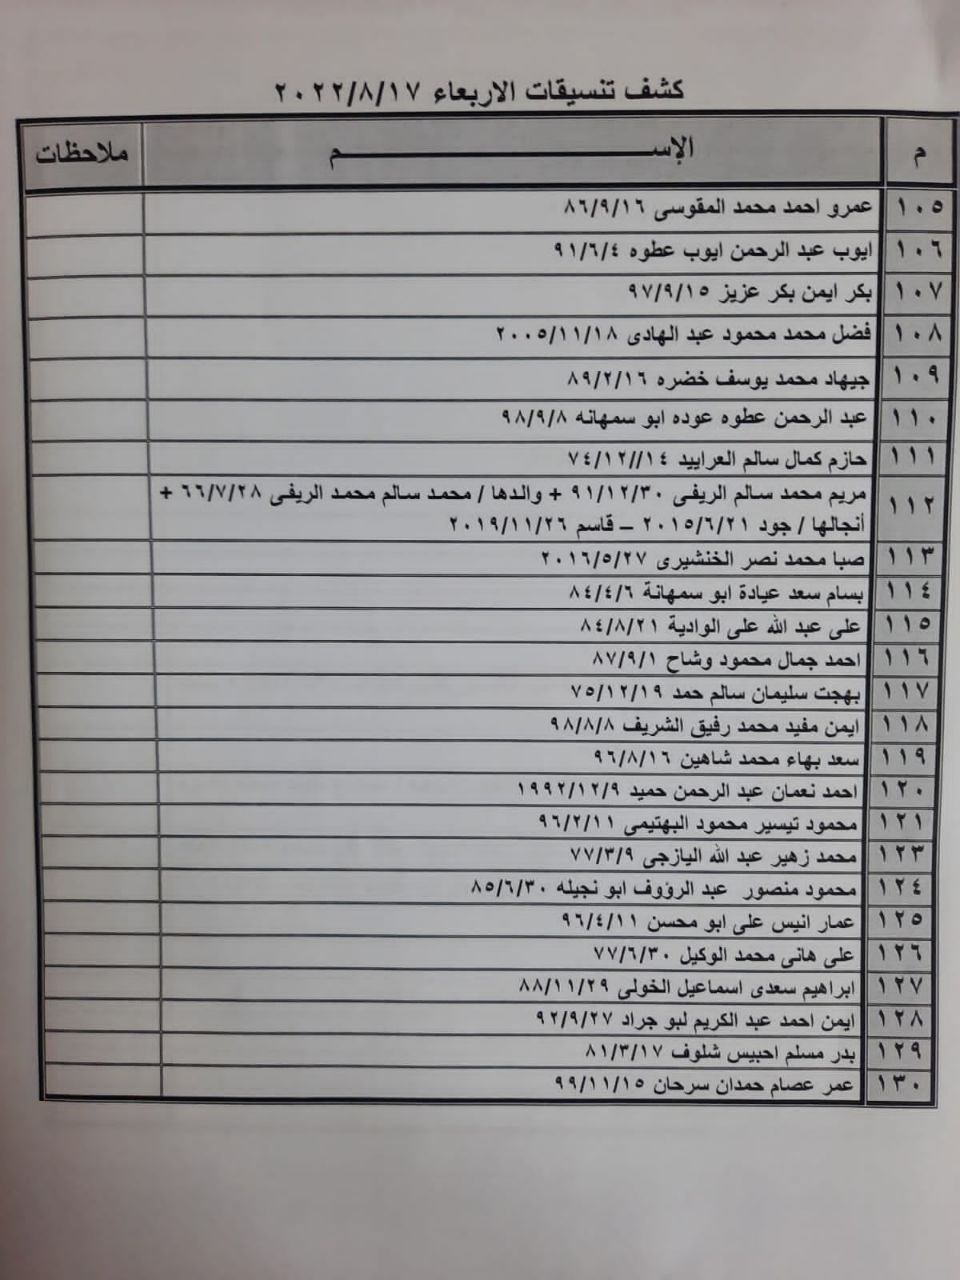 كشف تنسيقات الاربعاء ٢٠٢٢/٨/١٧
م الإســـــــــــــــم ملاحظات
١٠٥ عمرو احمد محمد المقوسى ٨٦/٩/١٦
١٠٦ ايوب عبد الرحمن ايوب عطوه ٩١/٦/٤
١٠٧ بكر ايمن بكر عزيز ٩٧/٩/١٥
١٠٨ فضل محمد محمود عبد الهادى ٢٠٠٥/١١/١٨
١٠٩ جيهاد محمد يوسف خضره ٨٩/٢/١٦
١١٠ عبد الرحمن عطوه عوده ابو سمهانه ٩٨/٩/٨
١١١ حازم كمال سالم العرابيد ٧٤/١٢//١٤
١١٢ مريم محمد سالم الريفى ٩١/١٢/٣٠ + والدها / محمد سالم محمد الريفى ٦٦/٧/٢٨ +
أنجالها / جود ٢٠١٥/٦/٢١ – قاسم ٢٠١٩/١١/٢٦
١١٣ صبا محمد نصر الخنشيرى ٢٠١٦/٥/٢٧
١١٤ بسام سعد عيادة ابو سمهانة ٨٤/٤/٦
١١٥ على عبد الله على الوادية ٨٤/٨/٢١
١١٦ احمد جمال محمود وشاح ٨٧/٩/١
١١٧ بهجت سليمان سالم حمد ٧٥/١٢/١٩
١١٨ ايمن مفيد محمد رفيق الشريف ٩٨/٨/٨
١١٩ سعد بهاء محمد شاهين ٩٦/٨/١٦
١٢٠ احمد نعمان عبد الرحمن حميد ١٩٩٢/١٢/٩
١٢١ محمود تيسير محمود البهتيمى ٩٦/٢/١١
١٢٣ محمد زهير عبد الله اليازجى ٧٧/٣/٩
١٢٤ محمود منصور عبد الرؤوف ابو نجيله ٨٥/٦/٣٠
١٢٥ عمار انيس على ابو محسن ٩٦/٤/١١
١٢٦ على هانى محمد الوكيل ٧٧/٦/٣٠
١٢٧ ابراهيم سعدى اسماعيل الخولى ٨٨/١١/٢٩
١٢٨ ايمن احمد عبد الكريم لبو جراد ٩٢/٩/٢٧
١٢٩ بدر مسلم احبيس شلوف ٨١/٣/١٧
١٣٠ عمر عصام حمدان سرحان ٩٩/١١/١٥